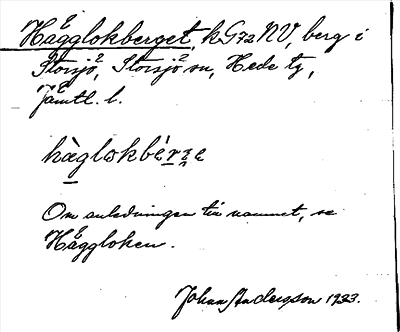 Hågglokberget, kG72NV, berg i
Storsjö, Storsjö sn, Hede tg,
Jämtl. l.
hàglokbér
Om anledningen till namnet, se
Håggloken.
Johan Andersson 1933.